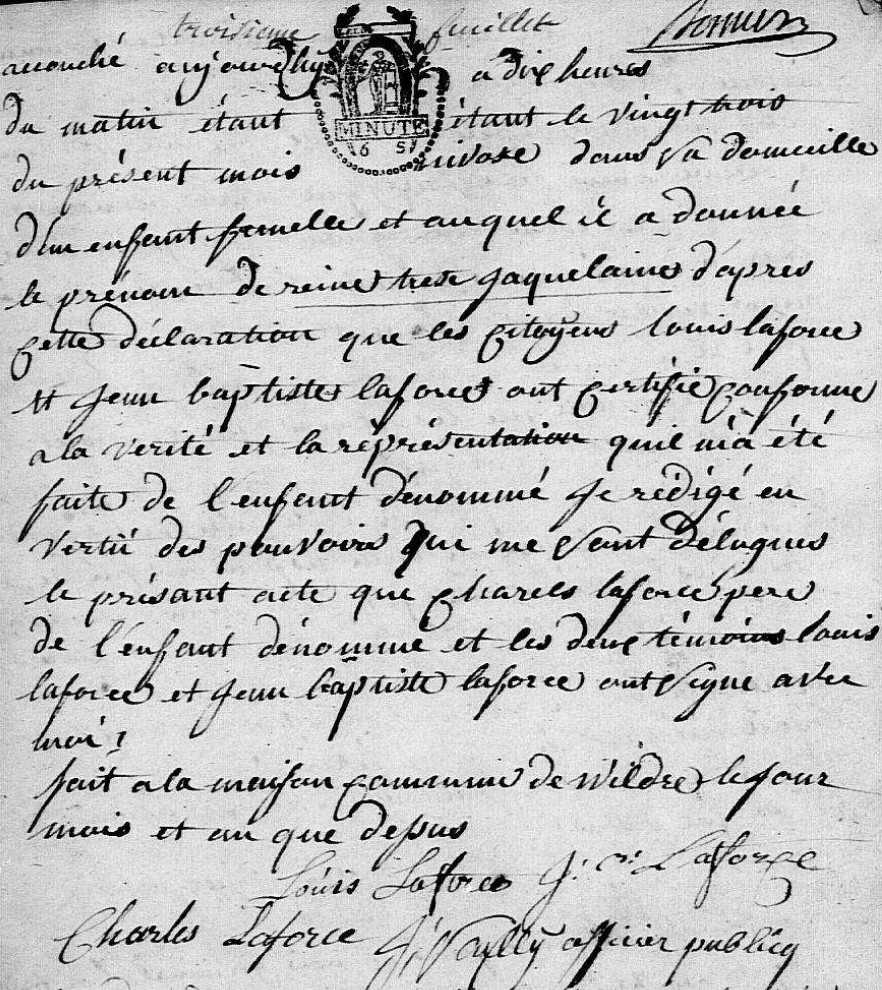 troisieme feuillet
accouché aujourdhuy a dix heures
du matin étant étant le vingt trois
MINUTE
du présent mois nivose dans sa domicille
6 S
d'un enfant femelle et auquel il a donnée
le prénom de reine trese Jaquelaine d'apres
cette déclaration que les citoyens louis laforce
et Jean baptiste laforce ont certifie conforme
a la verité et la réprésentation quil m'a été
faite de l'enfant dénommé Je rédigé en
vertu des pouvoirs qui me sont délugues
le présant acte que Charels laforce pere
de l'enfant dénommé et les deux témoins louis
laforce et Jean baptiste laforce ont signe avec
moi
fait a la maison commune de Wildre le jour
mois et an que dessus
Louis Laforce J. Laforce
Charles Laforce officier publicq